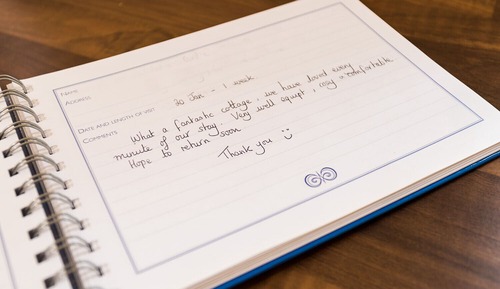 NAME
ADDRESS
DATE AND LENGTH OF VISIT 30 Jan - 1 week
COMMENTS What a fantastic cottage, we have loved every
minute of our stay. Very well equipt, cosy + comfortable
Hope to return soon
Thank you :)